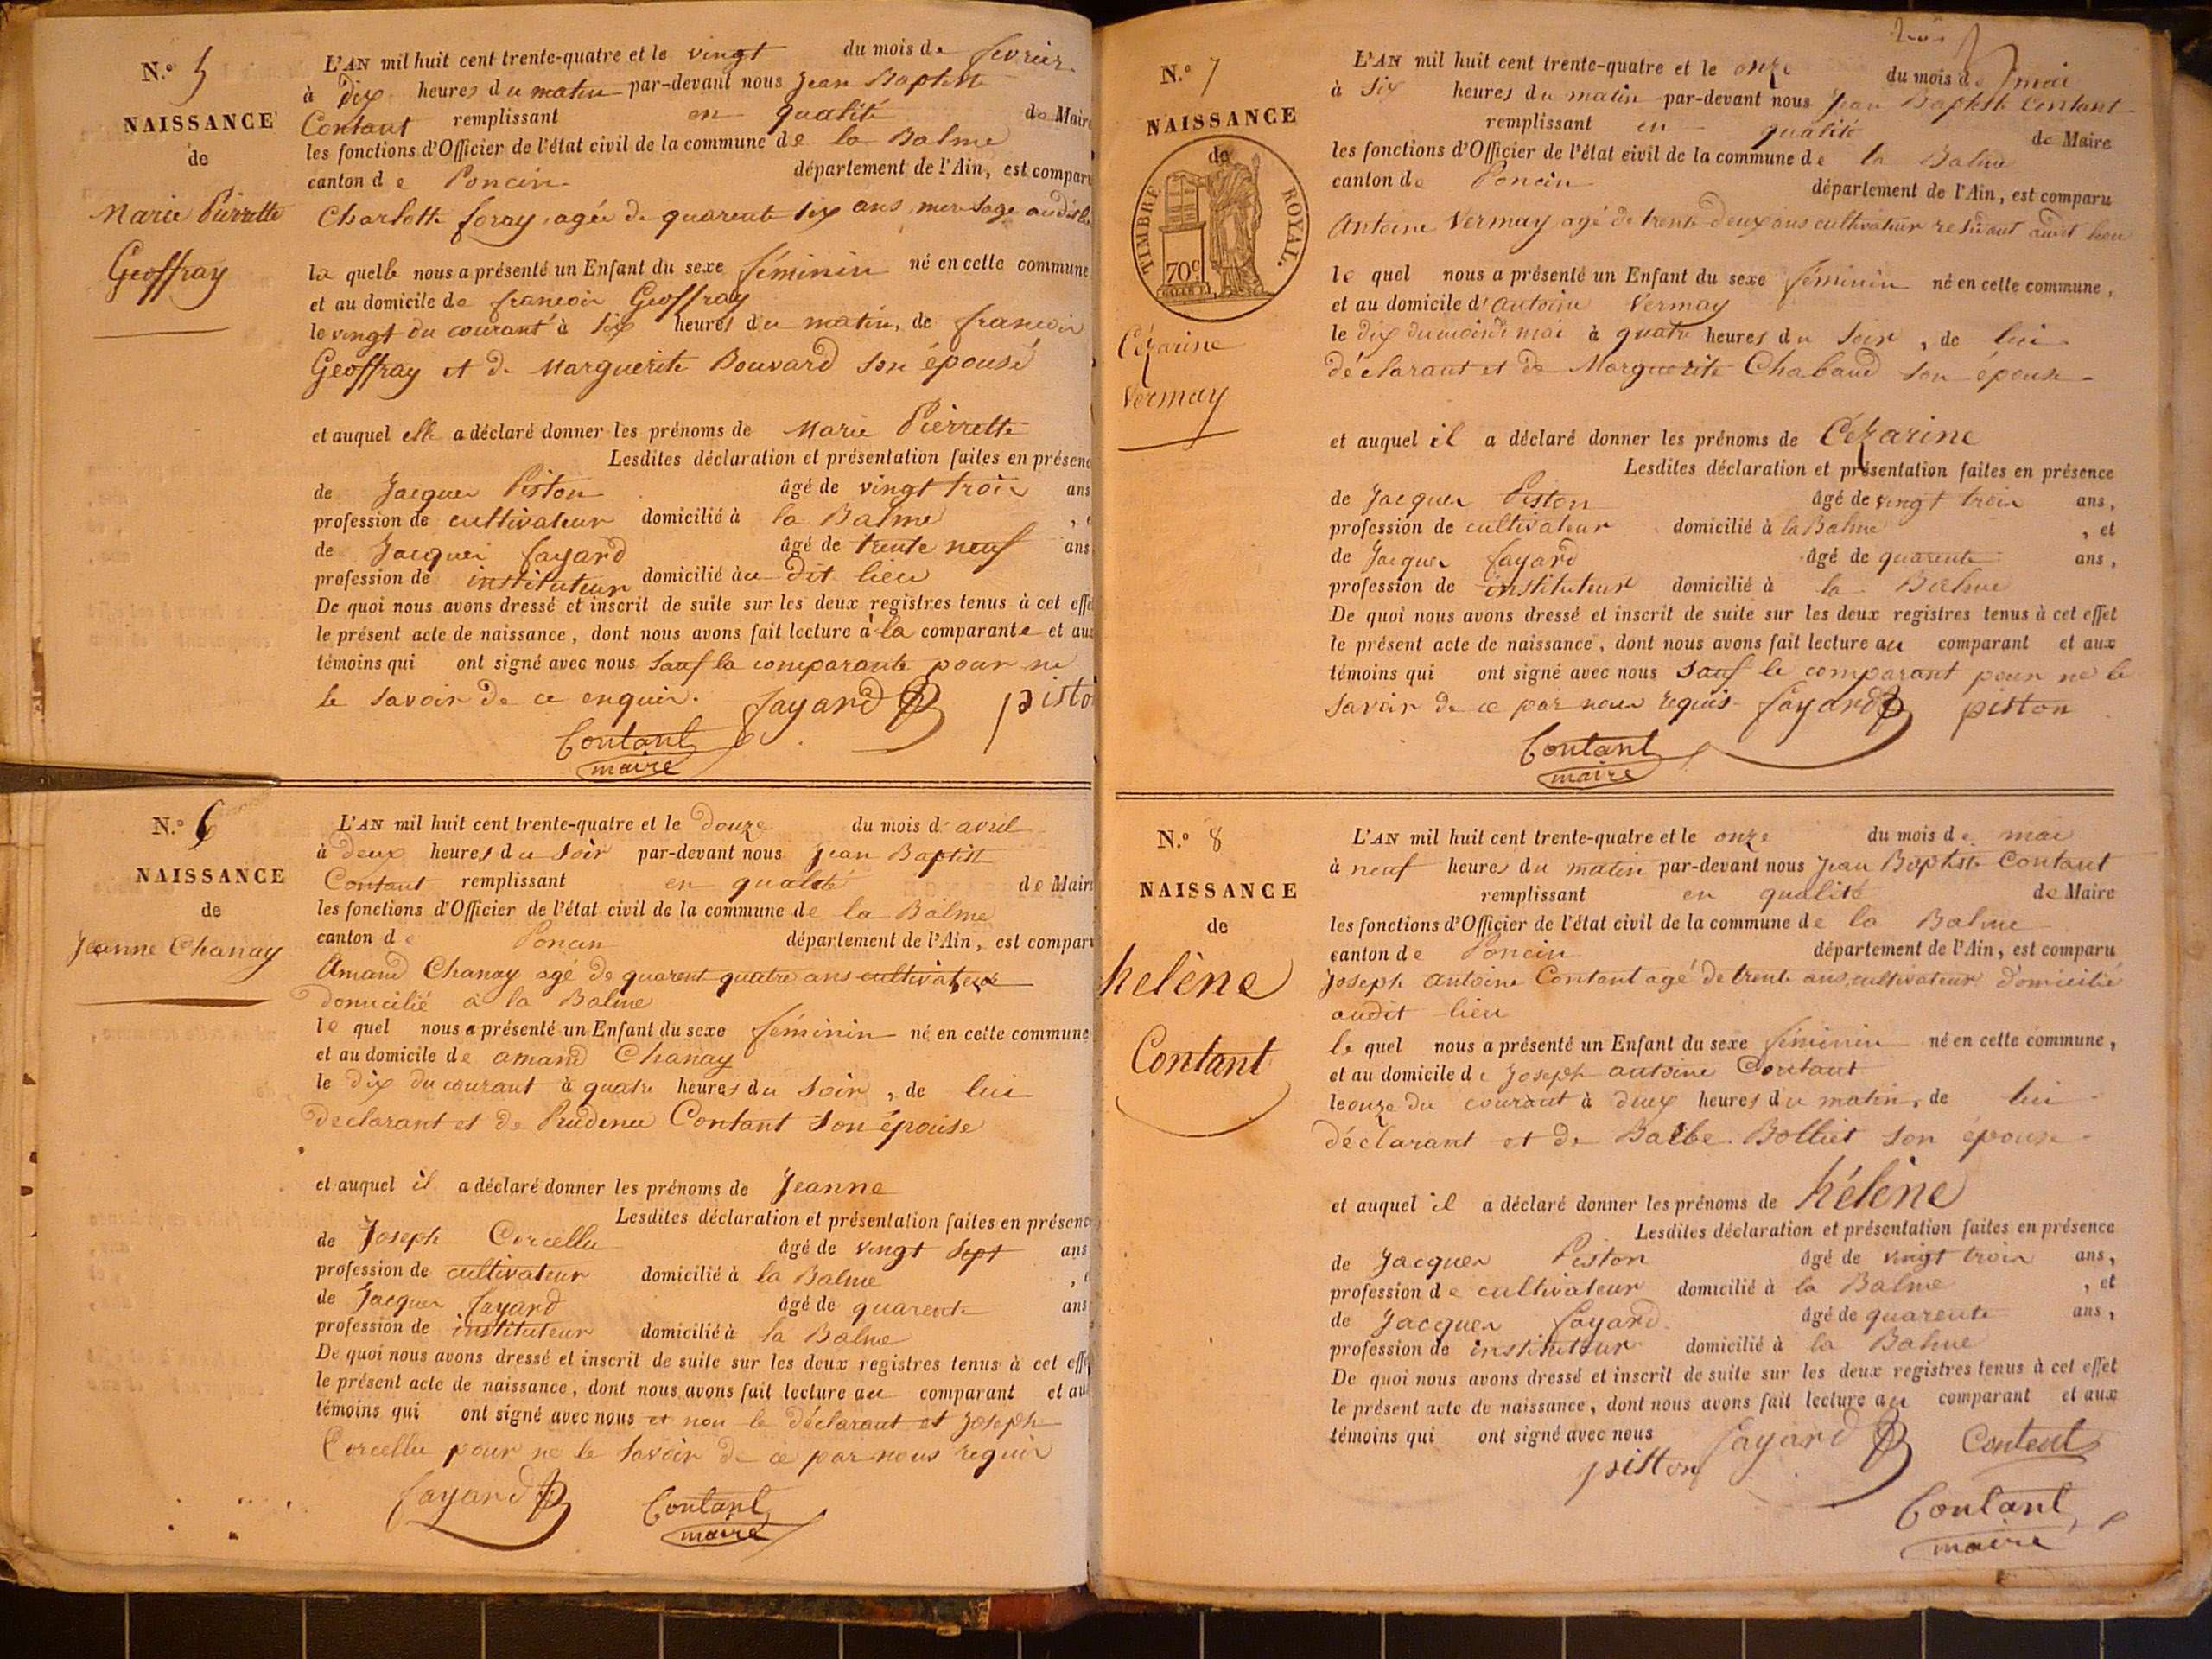 N.o 5
NAISSANCE
de
Marie Pierrette
Geoffray
L'AN mil huit cent trente-quatre et le vingt du mois de fevrier
à dix heures du matin par-devant nous Jean Baptiste
Contant remplissant en qualité de Maire
les fonctions d'Officier de l'état civil de la commune de la Balme
canton de Poncin département de l'Ain, est compar
Charlotte foray agée de quarente six ans mere sage audit lieu
la quelle nous a présenté un Enfant du sexe féminin né en cette commune
et au domicile de francois Geoffray
le vingt du courant à six heures du matin, de francois
Geoffray et de Marguerite Bouvard son épouse
et auquel elle a déclaré donner les prénoms de Marie Pierrette
Lesdites déclaration et présentation faites en présenc
de Jacques Piston âgé de vingt trois ans
profession de cultivateur domicilié à la Balme
de Jacques fayard âgé de trente neuf ans
profession de instituteur domicilié au dit lieu
De quoi nous avons dressé et inscrit de suite sur les deux registres tenus à cet effe
le présent acte de naissance, dont nous avons fait lecture à la comparante et aux
témoins qui ont signé avec nous sauf la comparante pour ne
le savoir de ce enquis. fayard pisto
Contant
maire
N.o 6
NAISSANCE
de
Jeanne Chanay
L'AN mil huit cent trente-quatre et le douze du mois d'avril
à deux heures du soir par-devant nous Jean Baptiste
Contant remplissant en qualité de Maire
les fonctions d'Officier de l'état civil de la commune de la Balme
canton de Poncin département de l'Ain, est compar
Amand Chanay agé de quarent quatre ans cultivateur
domicilié à la Balme
le quel nous a présenté un Enfant du sexe féminin né en cette commune
et au domicile de amand Chanay
le dix du courant à quatre heures du soir, de lui
declarant et de Prudence Contant son épouse
et auquel il a déclaré donner les prénoms de Jeanne
Lesdites déclaration et présentation faites en présenc
de Joseph Corcellu âgé de vingt sept ans
profession de cultivateur domicilié à la Balme
de Jacques fayard âgé de quarente ans
profession de instituteur domicilié à la Balme
De quoi nous avons dressé et inscrit de suite sur les deux registres tenus à cet effe
le présent acte de naissance, dont nous avons fait lecture au comparant et au
témoins qui ont signé avec nous et non le déclarant et Joseph
Corcellu pour ne le savoir de ce par nous requis
fayard Contant
maire
N.o 7
NAISSANCE
de
TIMBRE ROYAL.
70c
Cézarine
Vermay
L'AN mil huit cent trente-quatre et le onze du mois de mai
à six heures du matin par-devant nous Jean Baptiste Contant
remplissant en qualité de Maire
les fonctions d'Officier de l'état civil de la commune de la Balme
canton de Poncin département de l'Ain, est comparu
Antoine Vermay agé de trente deux ans cultivateur residant audit lieu
le quel nous a présenté un Enfant du sexe féminin né en cette commune,
et au domicile d'antoine Vermay
le dix du mois de mai à quatre heures du soir, de lui
déclarant et de Marguerite Chabaud son épouse
et auquel il a déclaré donner les prénoms de Cézarine
Lesdites déclaration et présentation faites en présence
de Jacques Piston âgé de vingt trois ans,
profession de cultivateur domicilié à la Balme, et
de Jacques fayard âgé de quarente ans,
profession de instituteur domicilié à la Balme
De quoi nous avons dressé et inscrit de suite sur les deux registres tenus à cet effet
le présent acte de naissance, dont nous avons fait lecture au comparant et aux
témoins qui ont signé avec nous sauf le comparant pour ne le
savoir de ce par nous requis fayard piston
Contant
maire
N.o 8
NAISSANCE
de
helène
Contant
L'AN mil huit cent trente-quatre et le onze du mois de mai
à neuf heures du matin par-devant nous Jean Baptiste Contant
remplissant en qualité de Maire
les fonctions d'Officier de l'état civil de la commune de la Balme
canton de Poncin département de l'Ain, est comparu
joseph antoine Contant agé de trente ans cultivateur domicilié
audit lieu
le quel nous a présenté un Enfant du sexe féminin né en cette commune,
et au domicile de Joseph antoine Contant
le onze du courant à deux heures du matin, de lui
déclarant et de Balbe Bolliet son épouse
et auquel il a déclaré donner les prénoms de hélène
Lesdites déclaration et présentation faites en présence
de Jacques Piston âgé de vingt trois ans,
profession de cultivateur domicilié à la Balme, et
de Jacques fayard âgé de quarente ans,
profession de instituteur domicilié à la Balme
De quoi nous avons dressé et inscrit de suite sur les deux registres tenus à cet effet
le présent acte de naissance, dont nous avons fait lecture au comparant et aux
témoins qui ont signé avec nous fayard Content
piston
Contant
maire